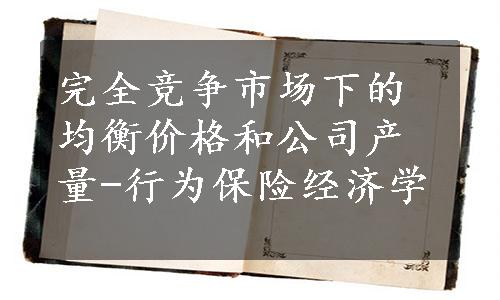 完全竞争市场下的
均衡价格和公司产
量-行为保险经济学